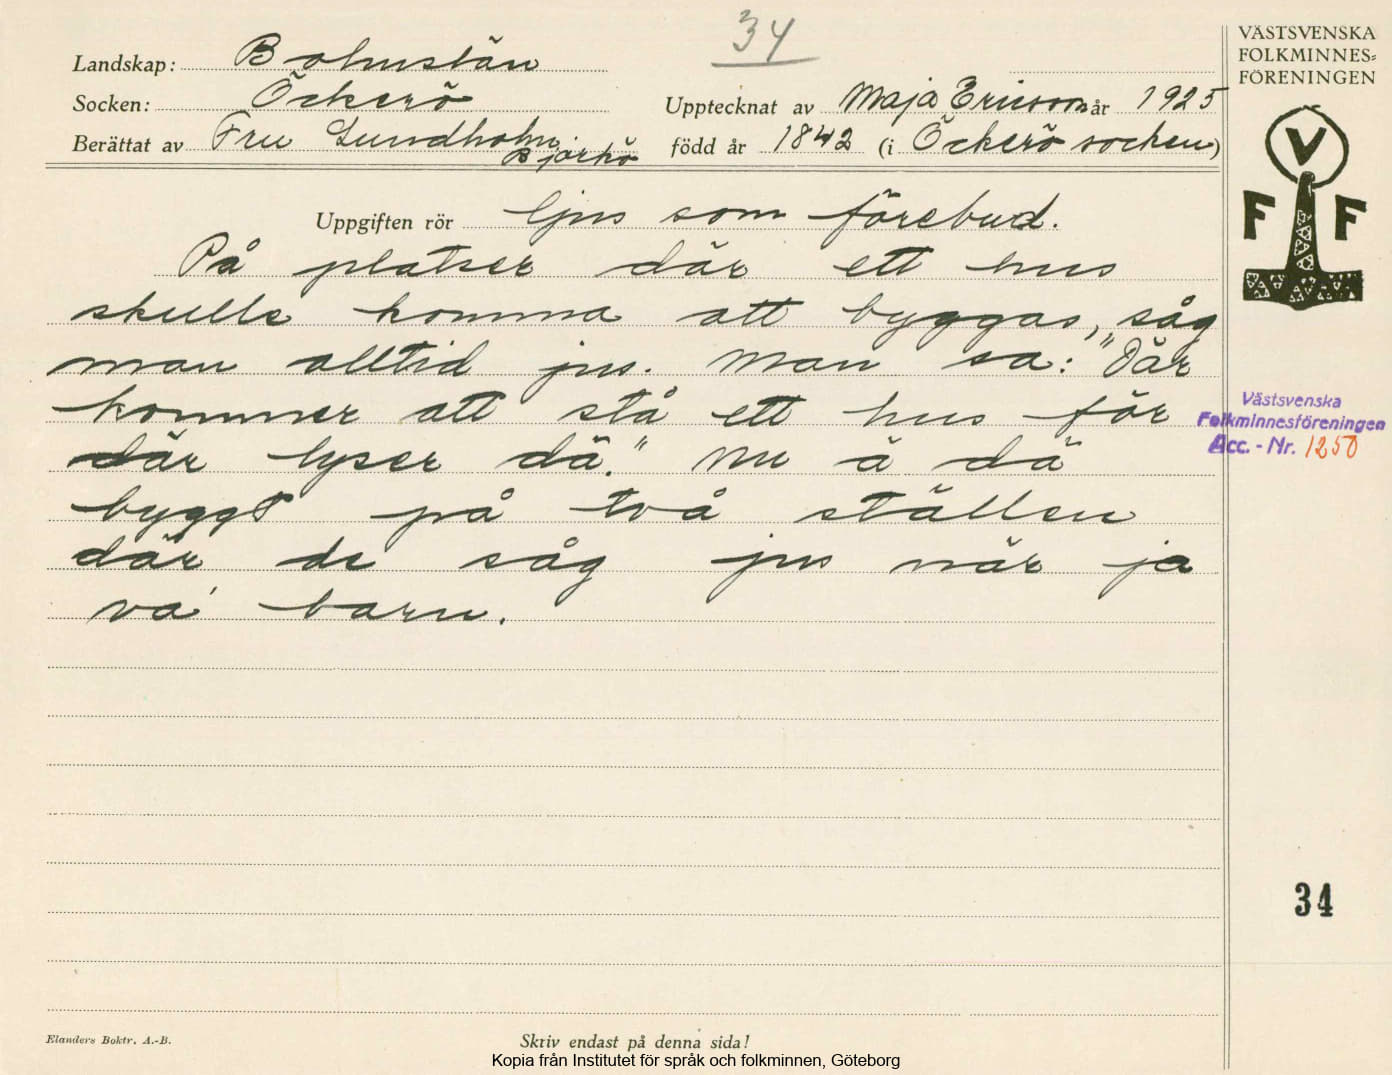 34
VÄSTSVENSKA
FOLKMINNES=
FÖRENINGEN
Landskap: Bohuslän
Socken: Öckerö
Upptecknat av Maja Ericson år 1925
Berättat av Fru Lundholm Björkö
född år 1842 (i Öckerö socken)
V
F F
Uppgiften rör ljus som förebud.
På platser där ett hus
skulle komma att byggas, såg
man alltid jus. Man sa: "Där
kommer att stå ett hus för
där lyser dä." Nu ä dä
byggt på två ställen
där de såg jus när ja
va' barn.
Västsvenska
Folkminnesföreningen
Acc. - Nr. 1250
34
Elanders Boktr. A.-B.
Skriv endast på denna sida!
Kopia från Institutet för språk och folkminnen, Göteborg